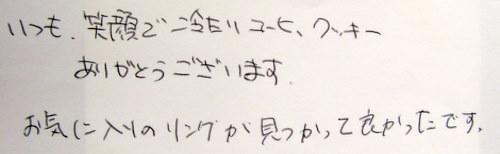 いつも、笑顔で冷たいコーヒ、クッキー
ありがとうございます.
お気に入りのリングが見つかって良かったです.